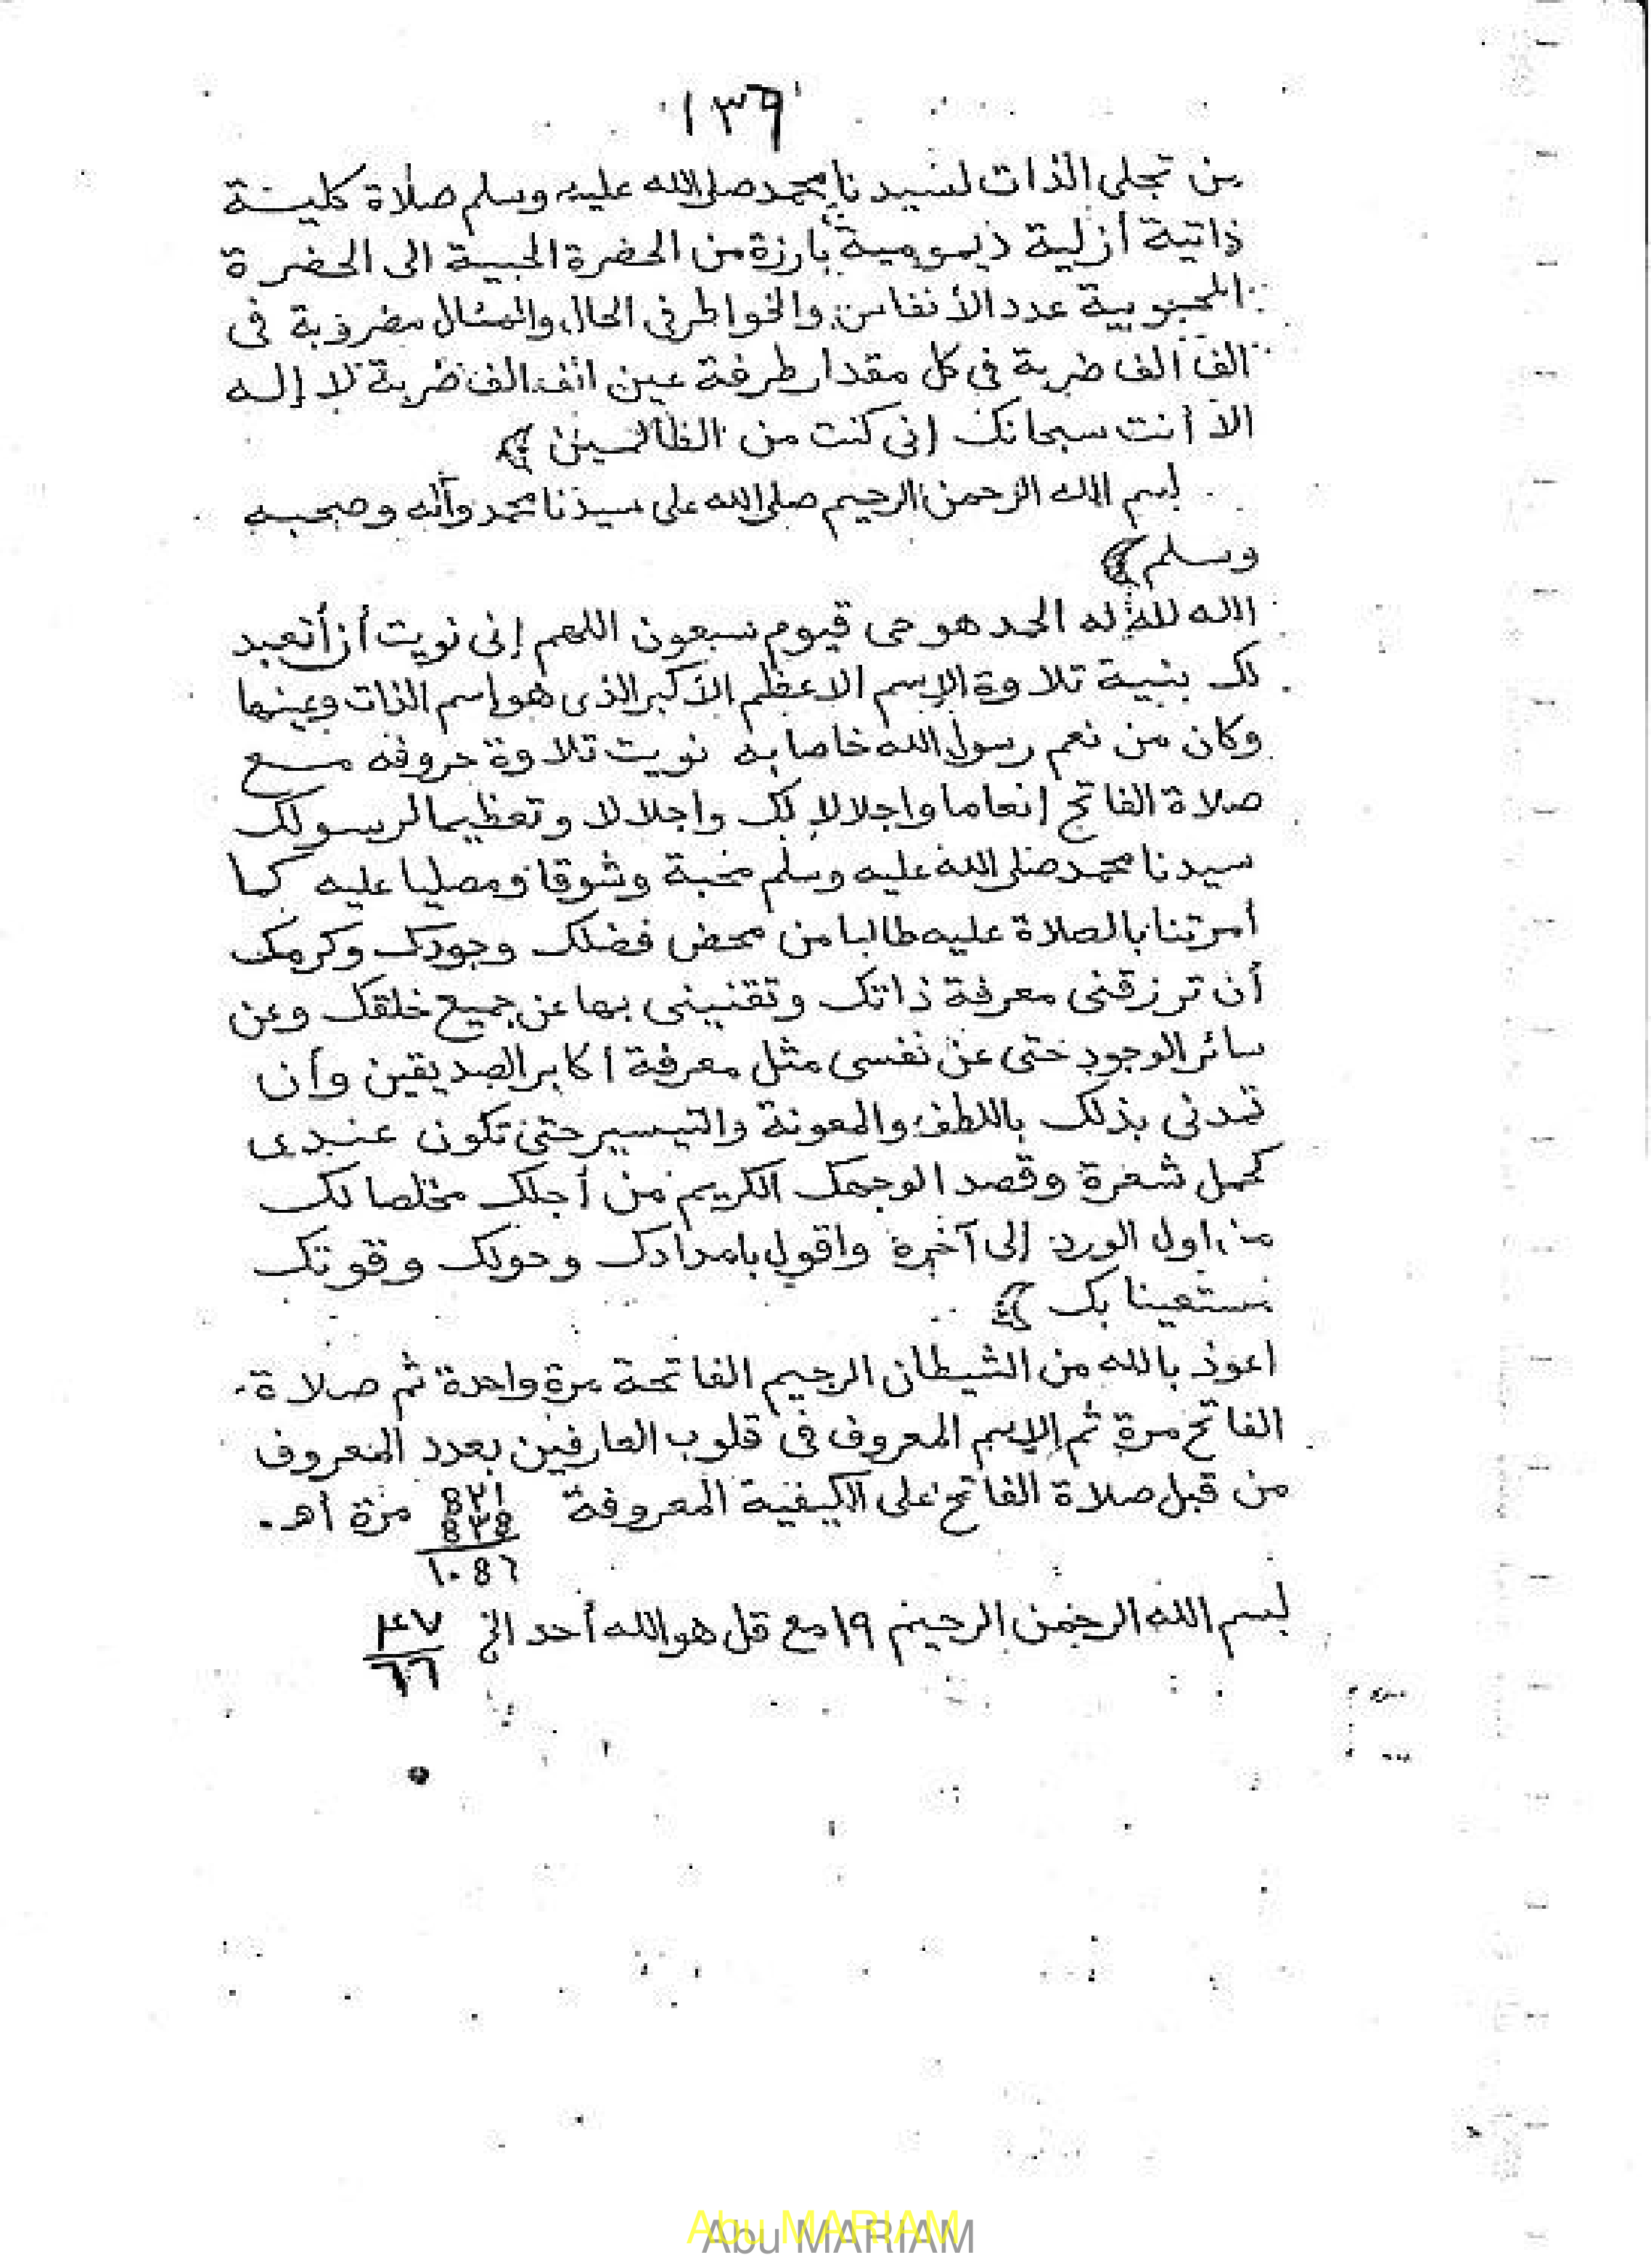 ١٣٦
من تجلى الذات لسيدنا محمد صلى الله عليه وسلم صلاة كلية
ذاتية أزلية ديمومية بارزة من الحضرة الحبية الى الحضرة
المحبوبية عدد الأنفاس والخواطر فى الحال والمثال مضروبة فى
الف الف ضربة فى كل مقدار طرفة عين الف الف ضربة لا إله
الا أنت سبحانك إنى كنت من الظالمين
بسم الله الرحمن الرحيم صلى الله على سيدنا محمد وآله وصحبه
وسلم
الله لله له الحد هو حى قيوم سبعون اللهم إنى نويت أن أتعبد
لك بنية تلاوة الإسم الاعظم الأكبر الذى هو إسم الذات وعينها
وكان من نعم رسول الله خاصا به نويت تلاوة حروفه مع
صلاة الفاتح إنعاما واجلالا لك واجلالا وتعظيما لرسولك
سيدنا محمد صلى الله عليه وسلم محبة وشوقا ومصليا عليه كما
أمرتنا بالصلاة عليه طالبا من محض فضلك وجودك وكرمك
أن ترزقنى معرفة ذاتك وتقنينى بها عن جميع خلقك وعن
سائر الوجود حتى عن نفسى مثل معرفة اكابر الصديقين وأن
تمدنى بذلك باللطف والمعونة والتيسير حتى تكون عندى
كحمل شعرة وقصد الوجهك الكريم من أجلك مخلصا لك
من اول الورد إلى آخره واقول بامدادك وحولك وقوتك
مستعينا بك
اعوذ بالله من الشيطان الرجيم الفاتحة مرة واحدة ثم صلاة
الفاتح مرة ثم الإسم المعروف فى قلوب العارفين بعدد المعروف
من قبل صلاة الفاتح على الكيفية المعروفة مرة أهـ.
بسم الله الرحمن الرحيم ١٩ مع قل هو الله أحد الخ ٤٧
٦٦
Abu MARIAM